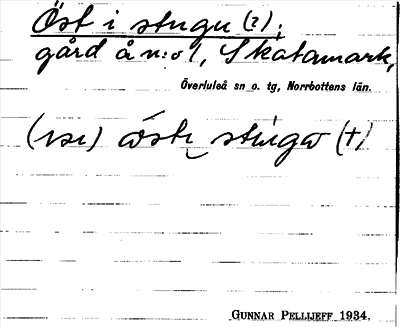 Öst i stugu (?);
gård å n:o 1, Skatamark,
Överluleå sn o. tg, Norrbottens län.
(vse) östi stúgo (†)
GUNNAR PELLIJEFF 1934.